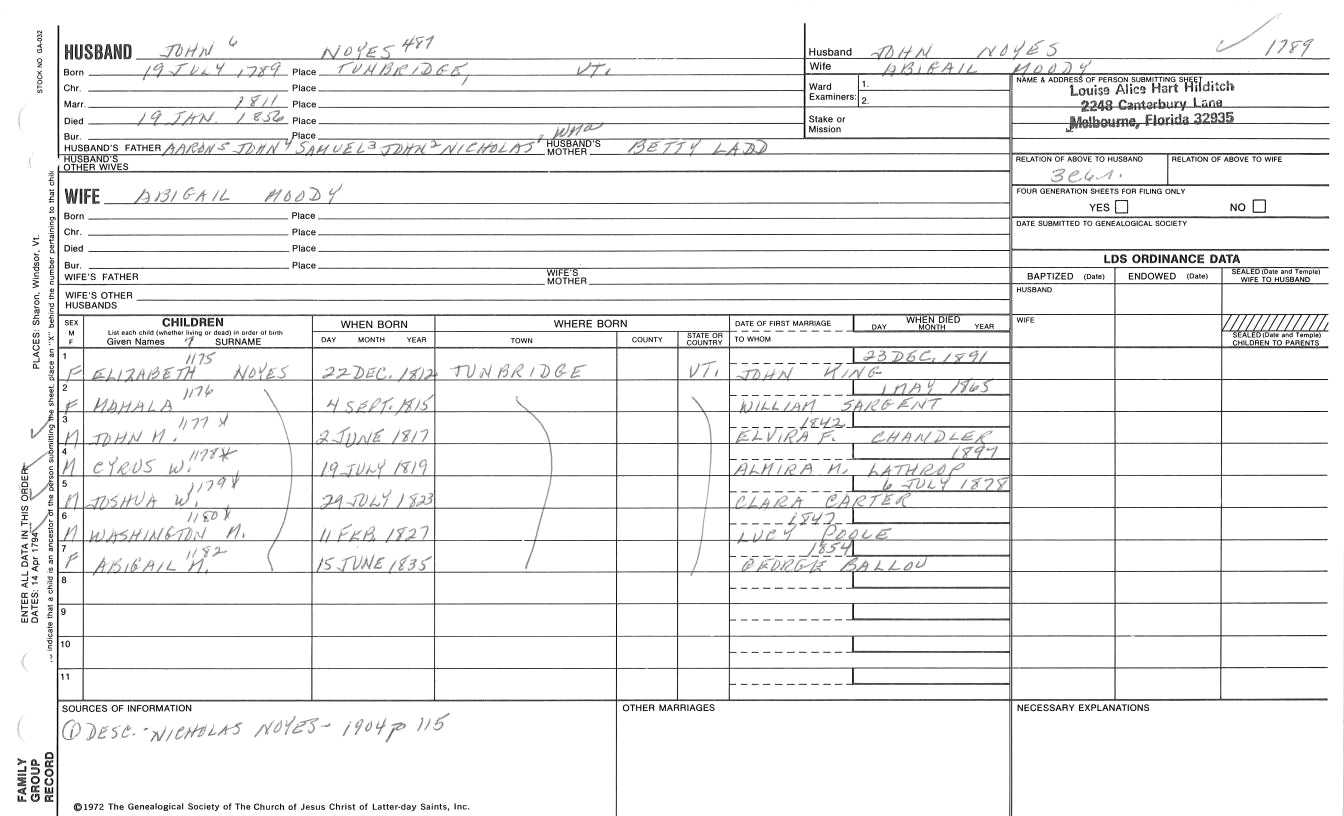 STOCK NO. GA-032
HUSBAND JOHN 6 NOYES 487
Born 19 JULY 1789 Place TUNBRIDGE, VT.
Chr. Place
Marr. 1811 Place
Died 19 JAN. 1856 Place
Bur. Place
HUSBAND'S FATHER AARON5 JOHN4 SAMUEL3 JOHN2 NICHOLAS1, Wma HUSBAND'S MOTHER BETTY LADD
HUSBAND'S OTHER WIVES
Husband JOHN NOYES ✓ 1789
Wife ABIGAIL MOODY
Ward Examiners: 1.
2.
Stake or Mission
NAME & ADDRESS OF PERSON SUBMITTING SHEET
Louise Alice Hart Hilditch
2248 Canterbury Lane
Melbourne, Florida 32935
RELATION OF ABOVE TO HUSBAND RELATION OF ABOVE TO WIFE
FOUR GENERATION SHEETS FOR FILING ONLY
YES NO
DATE SUBMITTED TO GENEALOGICAL SOCIETY
WIFE ABIGAIL MOODY
Born Place
Chr. Place
Died Place
Bur. Place
WIFE'S FATHER WIFE'S MOTHER
WIFE'S OTHER HUSBANDS
LDS ORDINANCE DATA
BAPTIZED (Date) ENDOWED (Date) SEALED (Date and Temple) WIFE TO HUSBAND
HUSBAND
WIFE
SEALED (Date and Temple) CHILDREN TO PARENTS
SEX M F CHILDREN WHEN BORN WHERE BORN DATE OF FIRST MARRIAGE WHEN DIED
List each child (whether living or dead) in order of birth
Given Names 7 SURNAME DAY MONTH YEAR TOWN COUNTY STATE OR COUNTRY TO WHOM DAY MONTH YEAR
1 F ELIZABETH 1175 NOYES 22 DEC. 1812 TUNBRIDGE VT. JOHN KING 23 DEC. 1891
2 F MAHALA 1176 4 SEPT. 1815 WILLIAM SARGENT 1 MAY 1865
3 M JOHN M. 1177 X 2 JUNE 1817 1842 ELVIRA F. CHANDLER
4 M CYRUS W. 1178 X 19 JULY 1819 ALMIRA M. LATHROP 1897
5 M JOSHUA W. 1179 X 29 JULY 1823 CLARA CARTER 6 JULY 1878
6 M WASHINGTON M. 1180 X 11 FEB. 1827 1847 LUCY POOLE
7 F ABIGAIL M. 1182 15 JUNE 1835 1854 GEORGE BALLOU
8
9
10
11
SOURCES OF INFORMATION OTHER MARRIAGES NECESSARY EXPLANATIONS
① DESC. - NICHOLAS NOYES - 1904 p 115
©1972 The Genealogical Society of The Church of Jesus Christ of Latter-day Saints, Inc.
PLACES: Sharon, Windsor, Vt.
ENTER ALL DATA IN THIS ORDER:
DATES: 14 Apr 1794
indicate that a child is an ancestor of the person submitting the sheet, place an "X" behind the number pertaining to that chil
FAMILY
GROUP
RECORD